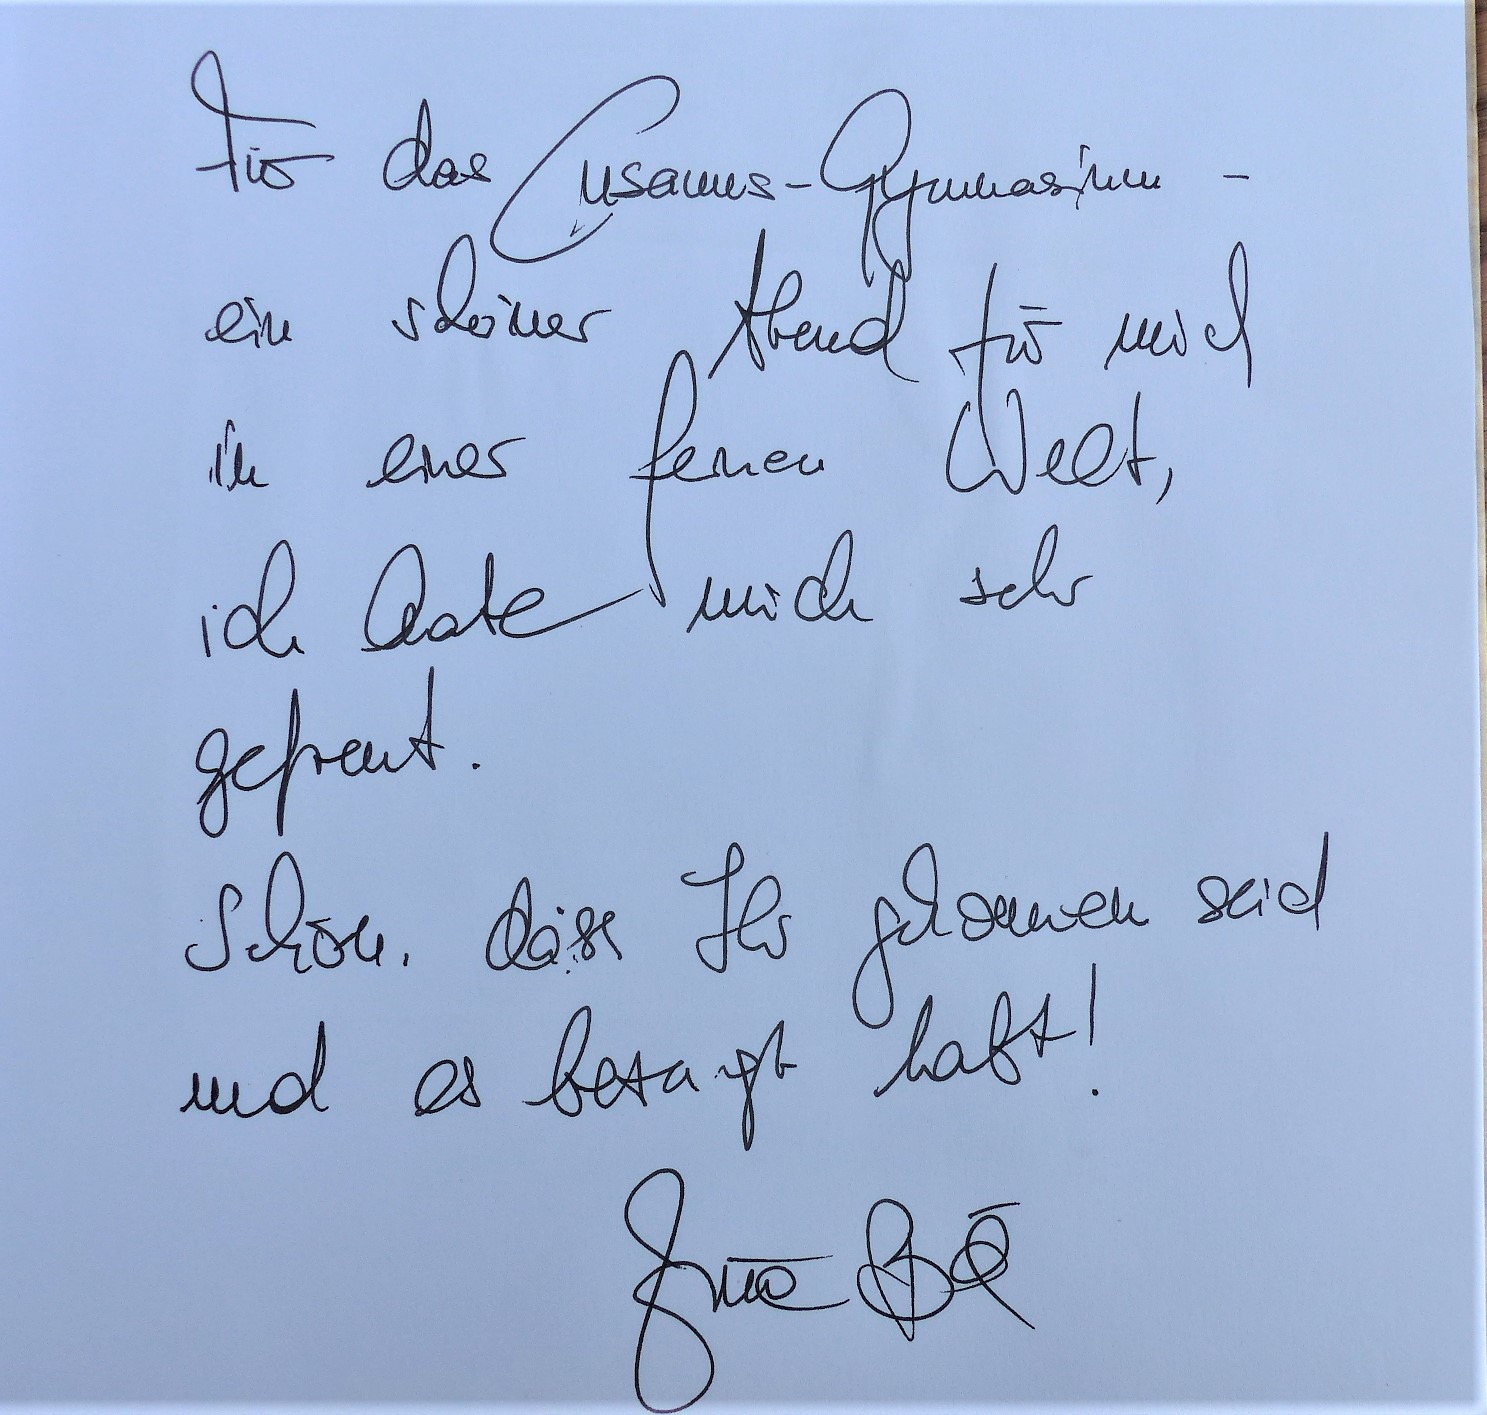 Für das Cusanus-Gymnasium -
ein schöner Abend für mich
in einer fernen Welt,
ich habe mich sehr
gefreut.
Schön, dass Ihr gekommen seid
und es gewagt habt!